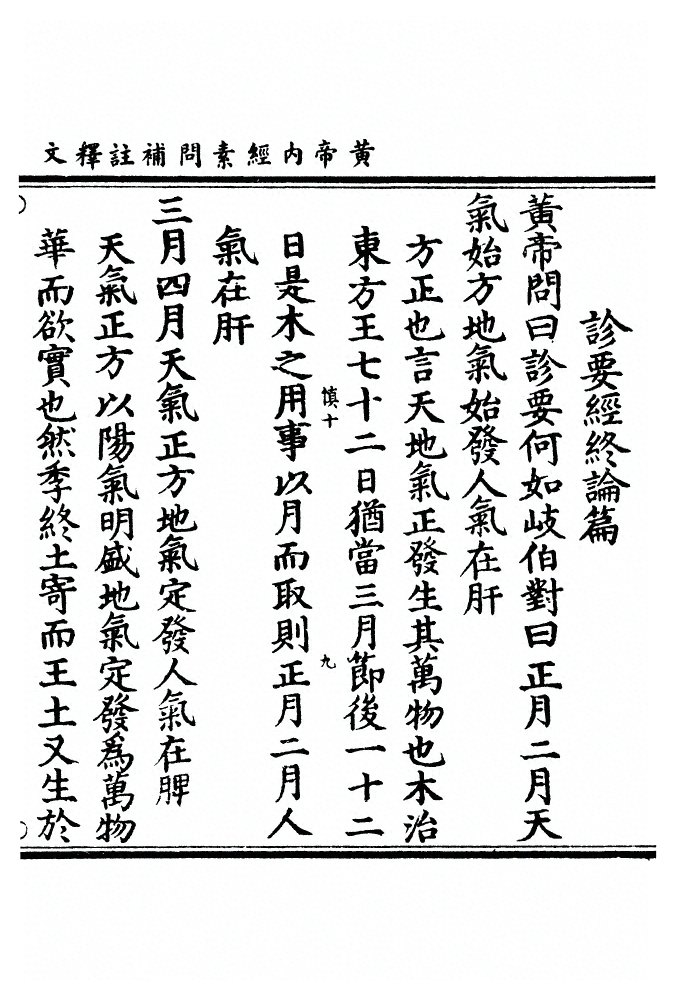 黃帝內經素問補註釋文
診要經終論篇
黃帝問曰診要何如岐伯對曰正月二月天
氣始方地氣始發人氣在肝
方正也言天地氣正發生其萬物也木治
東方王七十二日猶當三月節後一十二
慎十
九
日是木之用事以月而取則正月二月人
氣在肝
三月四月天氣正方地氣定發人氣在脾
天氣正方以陽氣明盛地氣定發為萬物
華而欲實也然季終土寄而王土又生於